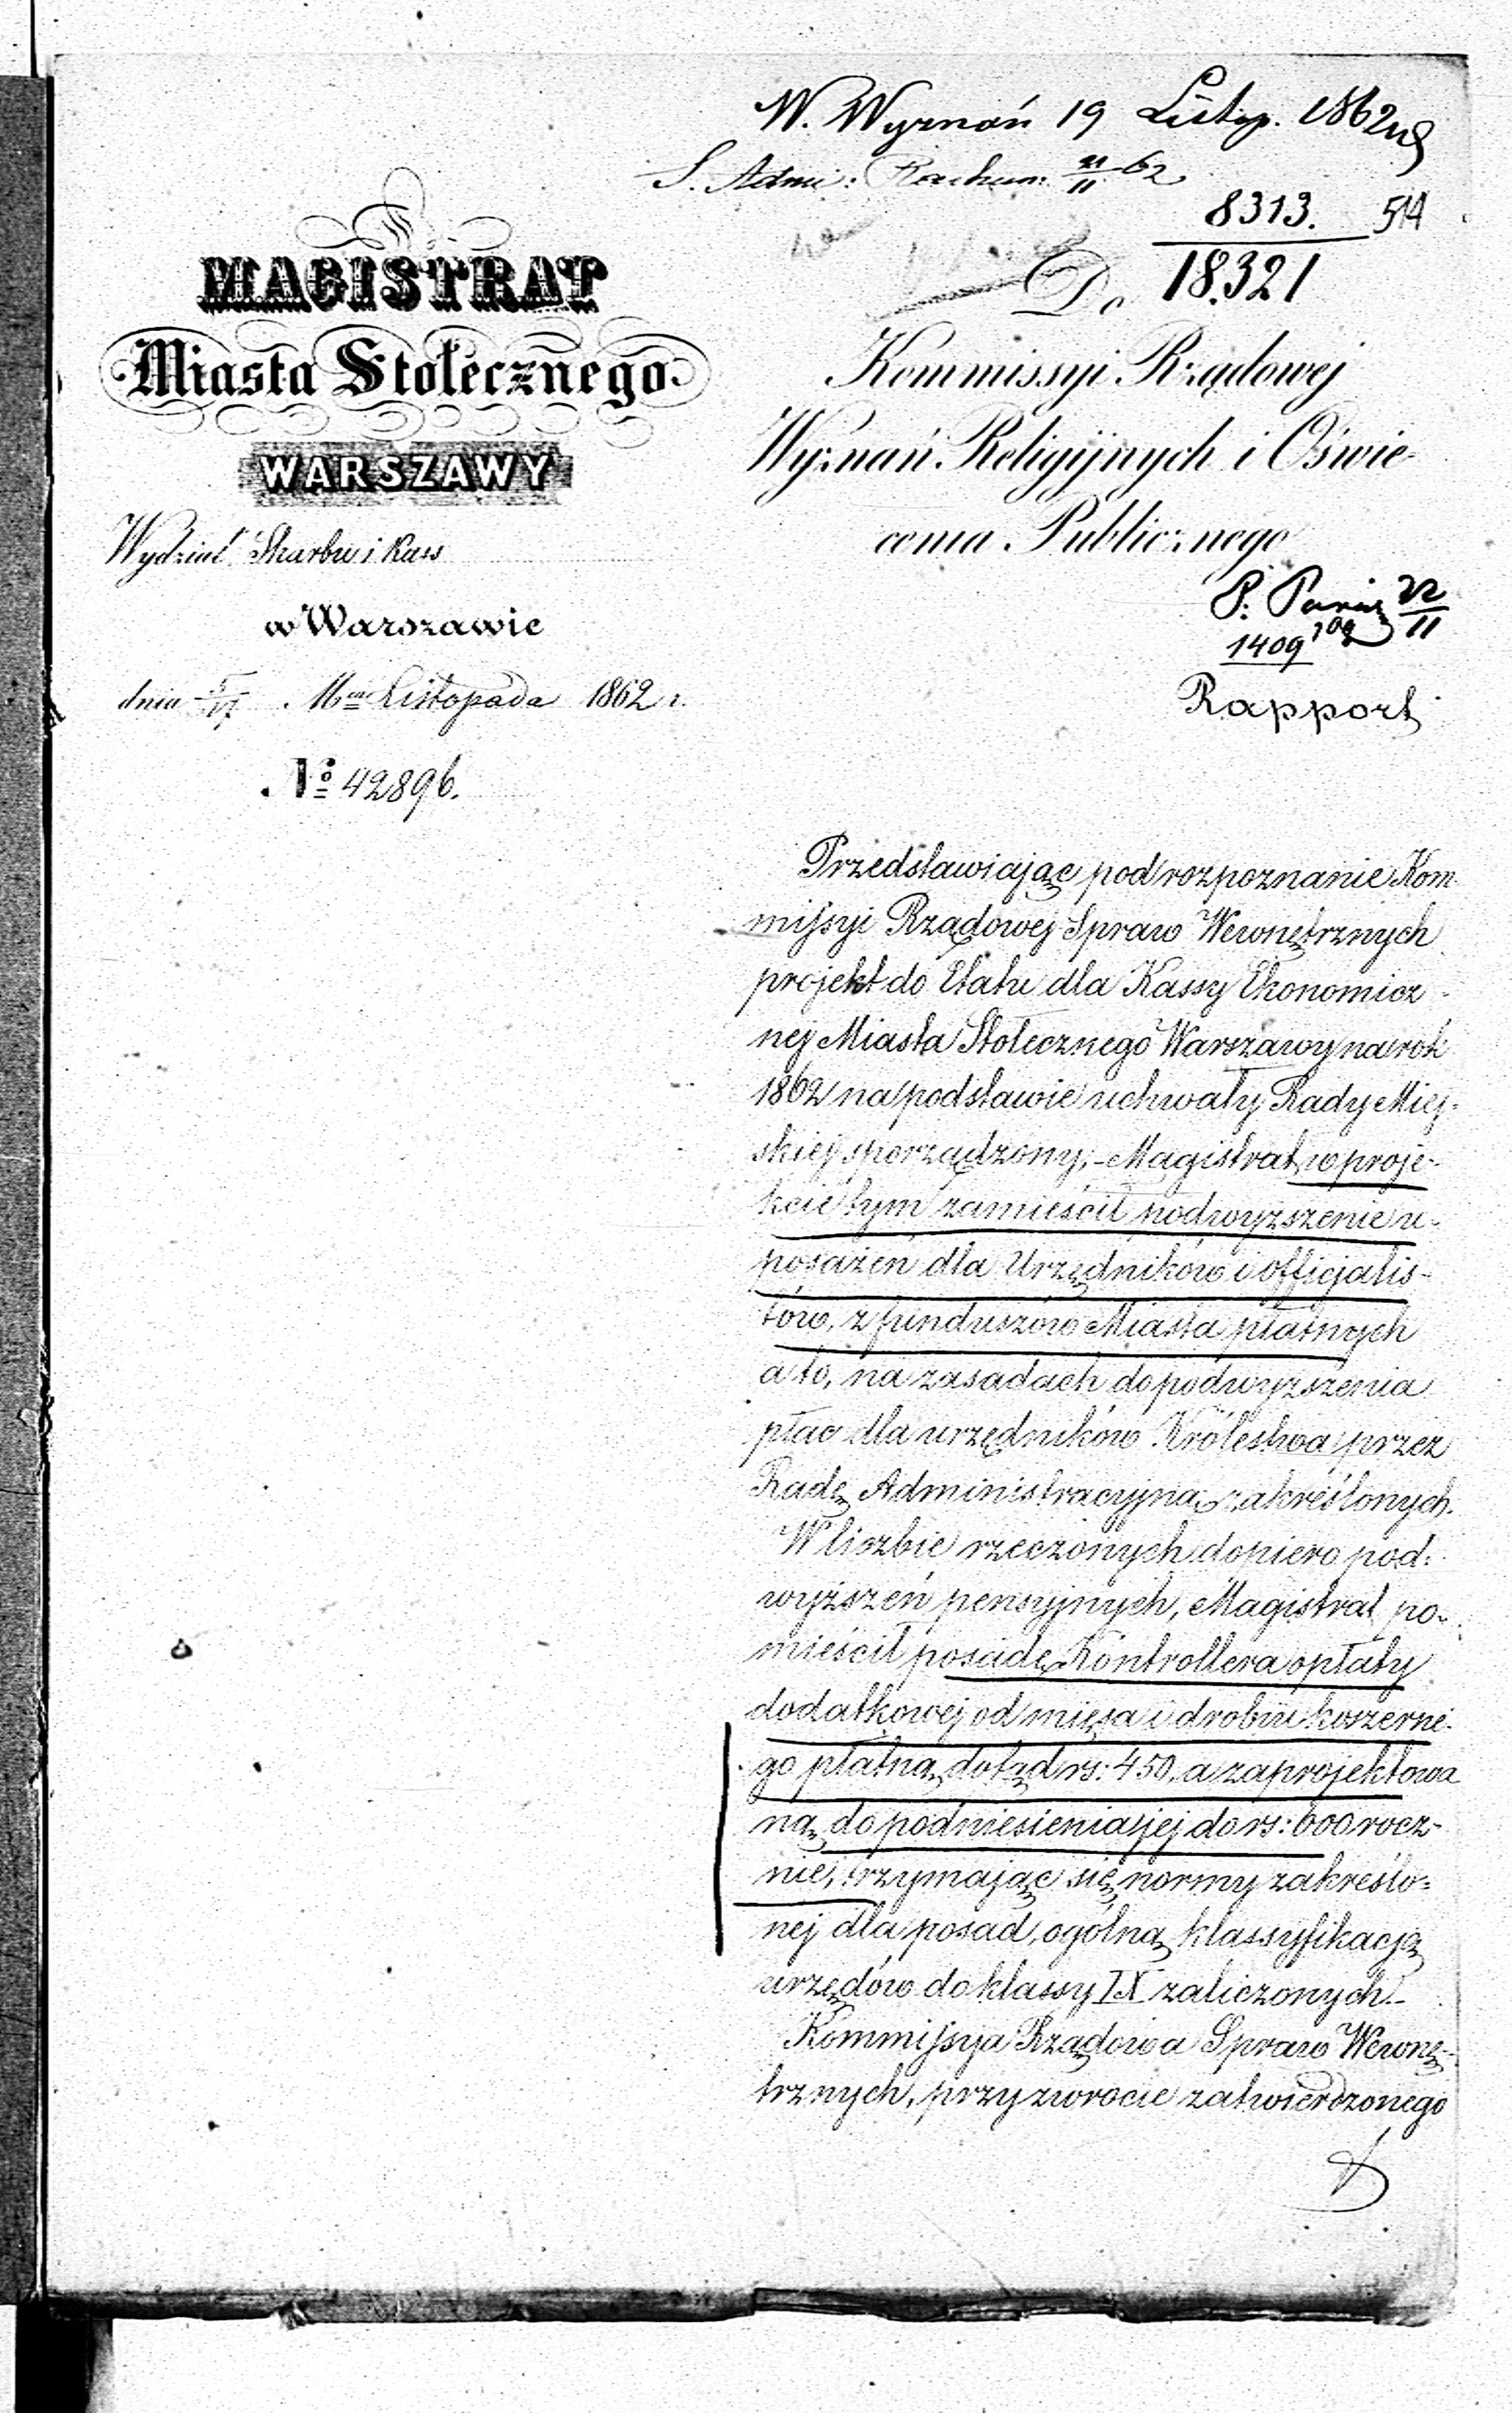 W. Wyznań 19 Listop. 1862
S. Admi: Rachun: 21/11 62
8313. 514
18.321
MAGISTRAT
Miasta Stołecznego
WARSZAWY
Wydział Skarbu i Kass
w Warszawie
dnia 5/17 Mca Listopada 1862 r.
№ 42896.
Do
Kommissyi Rządowej
Wyznań Religijnych i Oświe-
cenia Publicznego
P. 22/11
1409
Rapport
Przedstawiając pod rozpoznanie Kom-
missyi Rządowej Spraw Wewnętrznych
projekt do Etatu dla Kassy Ekonomicz-
nej Miasta Stołecznego Warszawy na rok
1862 na podstawie uchwały Rady Miej-
skiej sporządzony, - Magistrat w proje-
kcie tym zamieścił podwyższenie u-
posażeń dla Urzędników i officjalis-
tów, z funduszów Miasta płatnych
a to, na zasadach do podwyższenia
płac dla urzędników Królestwa przez
Radę Administracyjną zakreślonych.
W liczbie rzeczonych dopiero pod-
wyższeń pensyjnych, Magistrat po-
mieścił posadę Kontrollera opłaty
dodatkowej od mięsa i drobiu koszerne-
go płatną dotąd rs: 450, a zaprojektowa
ną do podniesienia jej do rs: 600 rocz-
nie, trzymając się normy zakreślo-
nej dla posad, ogólną klassyfikacją
urzędów do klassy IX zaliczonych.
Kommissya Rządowa Spraw Wewnę-
trznych, przy zwrocie zatwierdzonego